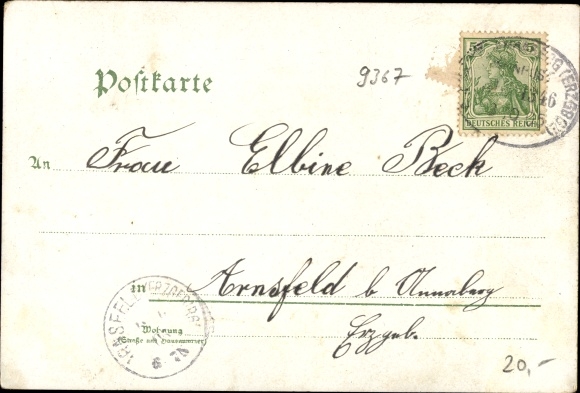 Postkarte
9367
5 5
DEUTSCHES REICH
An Frau Elbine Beck
in Arnsfeld b Annaberg
Wohnung
(Straße und Hausnummer)
Erzgeb.
20,-